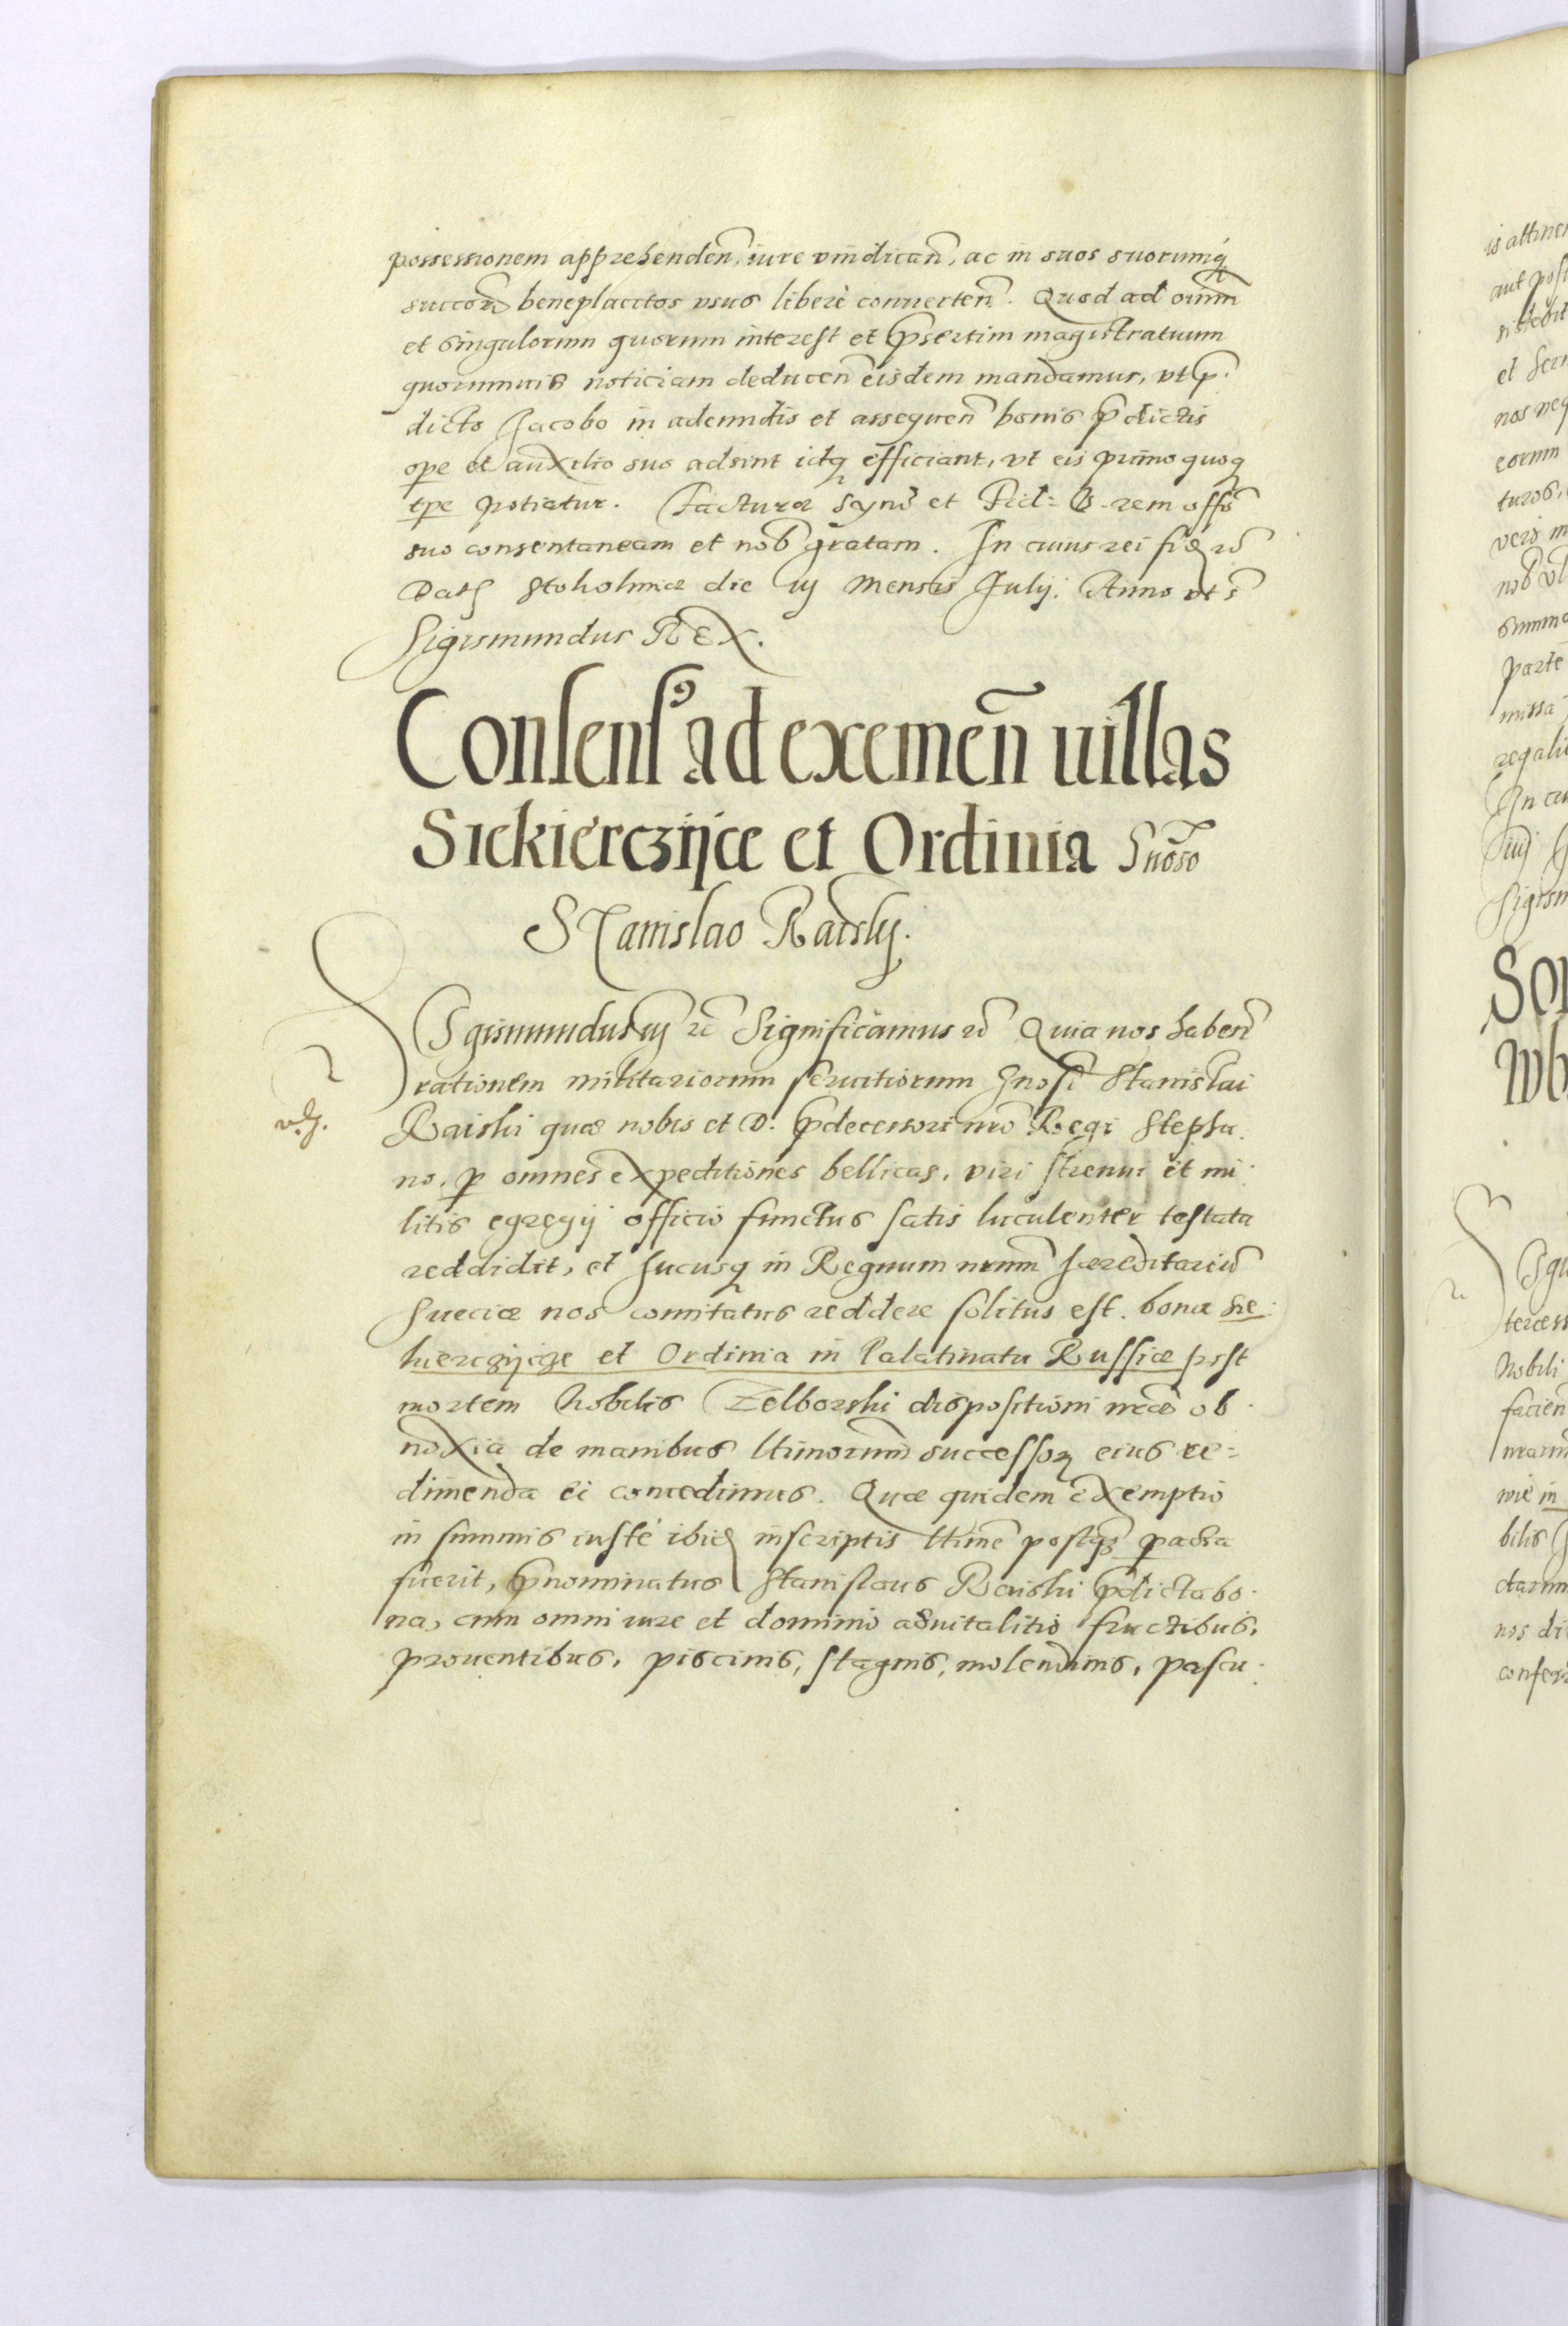 possessionem apprehendeñ, iure vindicañ, ac in suos suorumq́
succoꝝ beneplacitos vsus liberè conuerteñ. Quod ad oiūm
et singulorum quorum interest et p̃sertim magistratuum
quorumuis noticiam deduceñ eisdem mandamus, vt p̃
dicto Jacobo in adeundis et assequeñ bonis p̃dictis
ope et auxilio suo adsint idq̃ efficiant, vt eis primo quoq̃
tpe potiatur. Facturæ Synd̃ et Fid: V. rem offõ
suo consentaneam et nob̃ gratam. In cuius rei fid̃ rc̃
Datꝭ Stokolmiæ die iij Mensis Julij. Anno vt s̃
Sigismundus REX.
Consensꝰ ad exemeñ uillas
Siekierczijce et Ordinia Gnõso
Stanislao Raiski.
Sigismundus iij rc̃ Significamus rc̃ Quia nos habeñ
rationem militariorum seruitiorum Gnosi Stanislai
v. g.
Raiski quæ nobis et D. p̃decessori nrõ Regi Stepha
no, ꝑ omnes expeditiones bellicas, viri strenui et mi
litis egregij officio functus satis luculenter testata
reddidit, et hucusq̃ in Regnum nrum̃ hæreditariũ
Sueciæ nos comitatus reddere solitus est. bona Sie
kierczijcze et Ordinia in Palatinatu Russiæ post
mortem Nobilis Zelborski dispositioni nr̃æ ob
noxia de manibus ltimorum̃ successoꝝ eius re=
dimenda ei concedimus. Quæ quidem exemptio
in summis iustè ibid̃ inscriptis ltime postq̃ ꝑacta
fuerit, p̃nominatus Stanislaus Raiski p̃dicta bo
na, cum omni iure et dominio aduitalitio fructibus,
prouentibus, piscinis, stagnis, molendinis, pascu
is attinen
aut pos
et ser
nos neq
eorum
turos,
vero m
nob̃ vl
summa
parte
missa
regali
In cu
iiij
Sigism
Son
Wb
Sigi
tercess
Nobili
facien
nie in
bilis
ctarum
nos di
confer